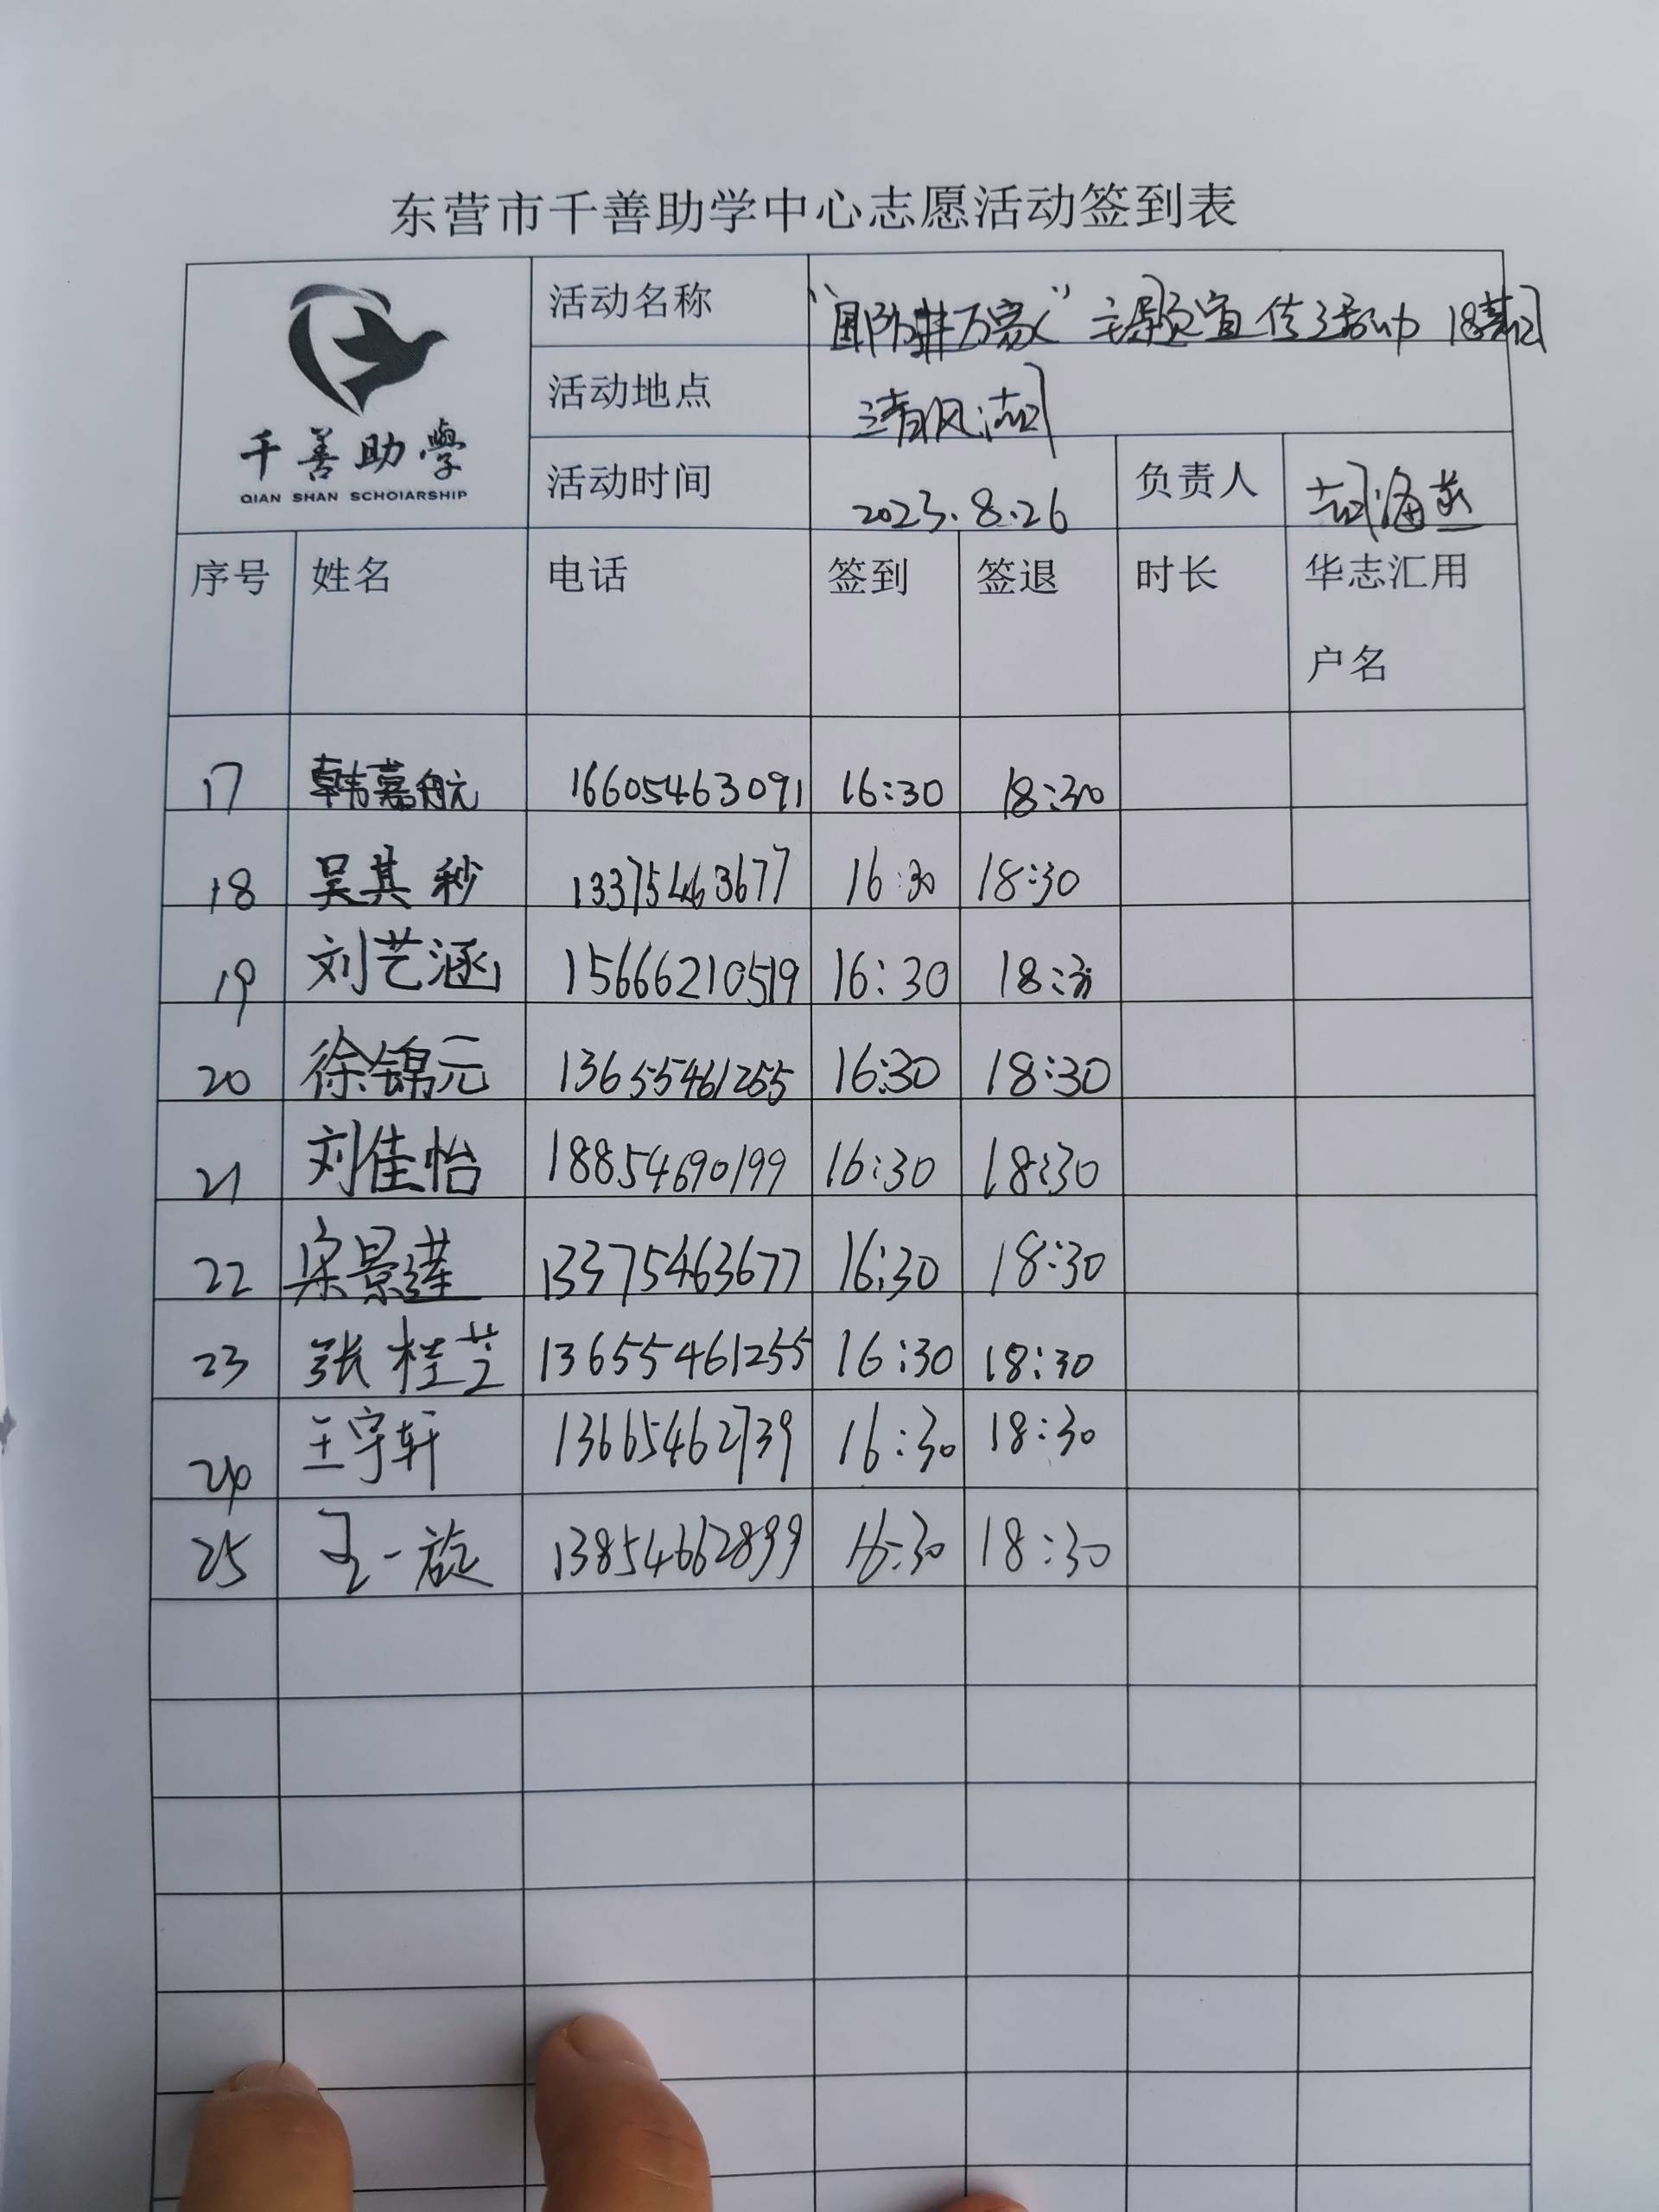 东营市千善助学中心志愿活动签到表
千善助學
QIAN SHAN SCHOLARSHIP
活动名称 主题宣传活动 18
活动地点 清风湖
活动时间 2023.8.26 负责人 胡海燕
序号 姓名 电话 签到 签退 时长 华志汇用
户名
17 韩嘉航 16605463091 16:30 18:30
18 吴其秒 13375463677 16:30 18:30
19 刘艺涵 15666210519 16:30 18:30
20 徐锦元 13655461255 16:30 18:30
21 刘佳怡 18854690199 16:30 18:30
22 宋景莲 13375463677 16:30 18:30
23 张桂芝 13655461255 16:30 18:30
24 王宇轩 13665462739 16:30 18:30
25 王一旋 13854662899 16:30 18:30